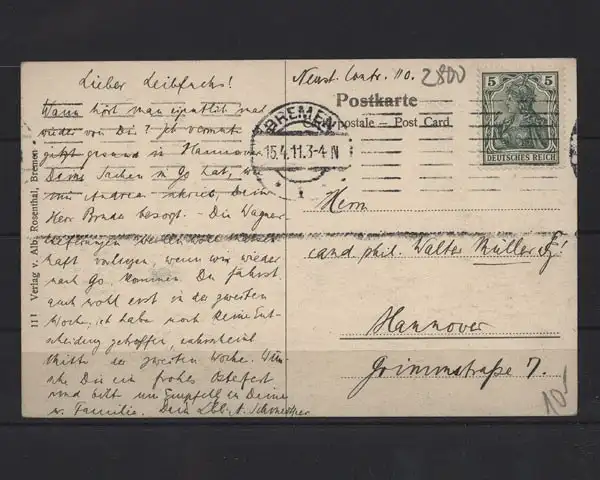 Lieber Leibfuchs!
Wann hört man eigentlich mal
wieder von Dir? Ich vermute
jetzt gesund in Hannover
Deine Sachen in Gö hat, wie
mir Andreae schrieb, Dein
Herr Bruder besorgt. – Die Wagner
haft vorliegen, wenn wir wieder
nach Gö. kommen. Du fährst
auch wohl erst in der zweiten
Woche, ich habe noch keine Ent-
scheidung getroffen, wahrscheinl.
Mitte der zweiten Woche. Wün-
sche Dir ein frohes Osterfest
und bitte um Empfehl. an Deine
w. Familie. Dein Lbb. A.
111 Verlag v. Alb. Rosenthal, Bremen
Neust. Contr. 110.
2800
Postkarte
postale – Post Card
BREMEN
15.4.11.3-4 N
1
5 5
DEUTSCHES REICH
Herrn
cand. phil. Walter Müller
Hannover
Grimmstraße 7.
10